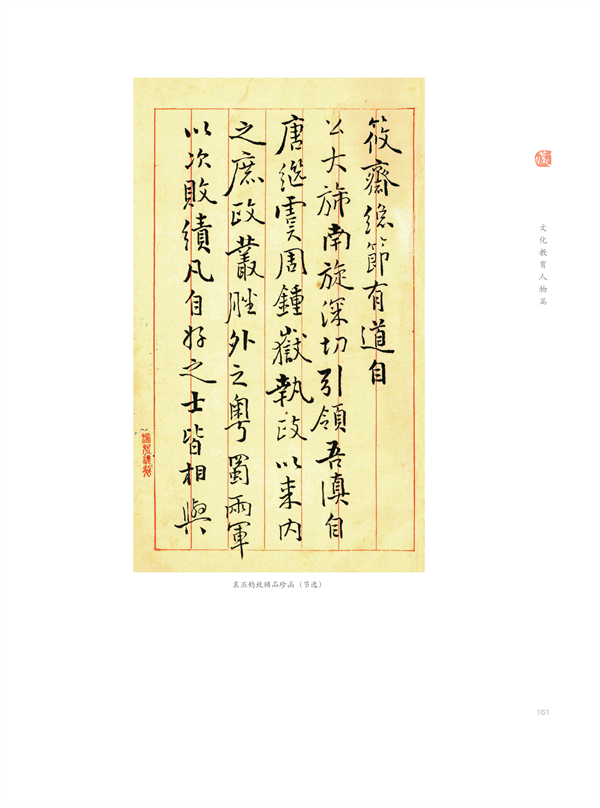 筱齋總節有道自
公大斾南旋深切引領吾滇自
唐選虞周鍾嶽執政以來内
之庶政叢脞外之粵蜀兩軍
以次敗績凡自好之士皆相與
文化教育人物篇
袁丕钧致顾品珍函（节选）
161